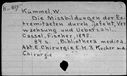 Kümmel, W.
Die Missbildungen der Ex-
tremitaeten durch Defekt, Ver-
wachsung und Ueberzahl.
Cassel, Fischer, 1895.
83 S. Bibliotheca medica,
Abt. E Chirurgie H. 3
Chirurgie